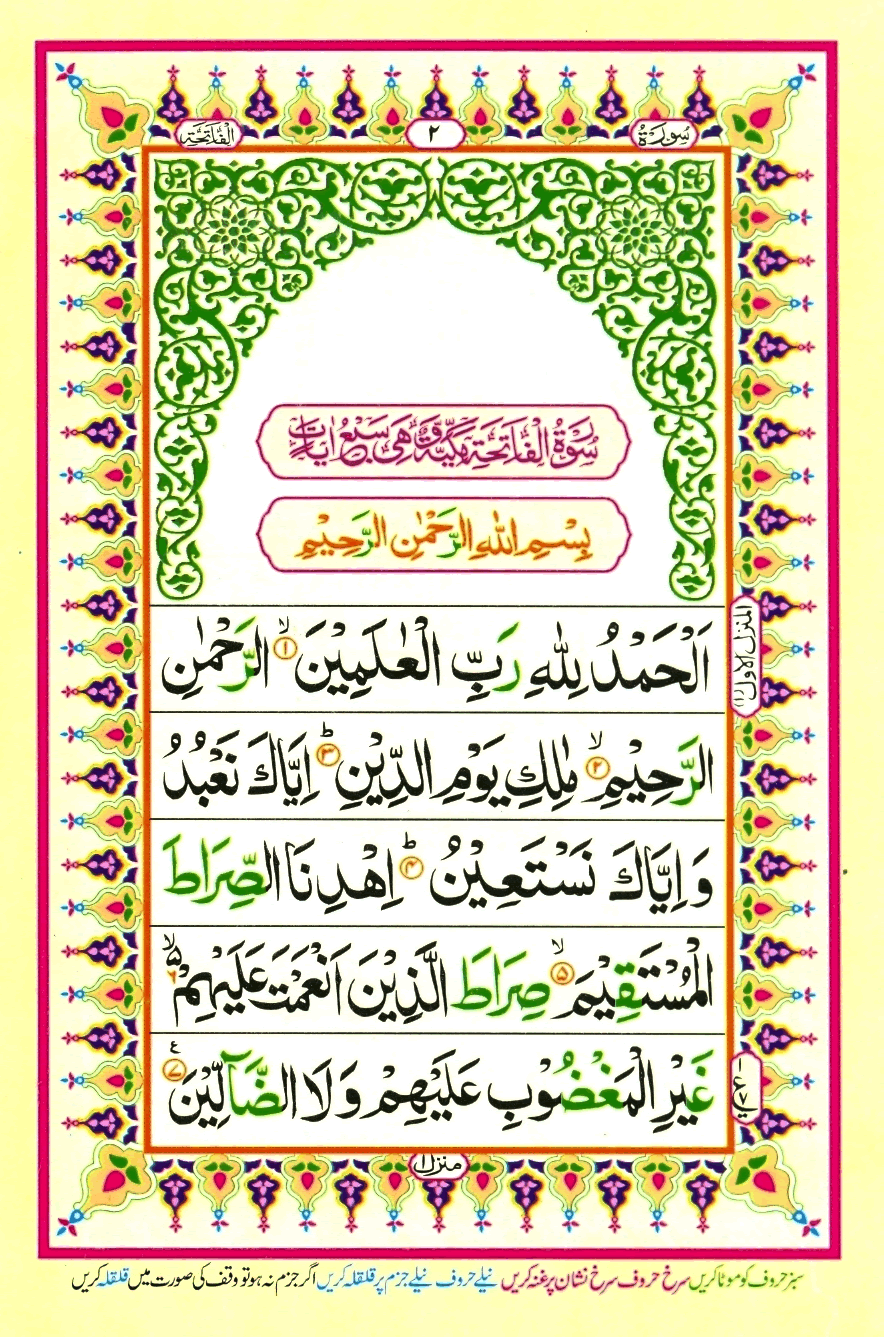 سُوْرَةُ ٢ اَلْفَاتِحَة
سُوْرَةُ الْفَاتِحَةِ مَكِّيَّةٌ وَّهِیَ سَبْعُ اٰیَاتٍ
بِسْمِ اللّٰهِ الرَّحْمٰنِ الرَّحِیْمِ
اَلْحَمْدُ لِلّٰهِ رَبِّ الْعٰلَمِیْنَ ۙ‏﴿۱﴾ الرَّحْمٰنِ
الرَّحِیْمِ ۙ‏﴿۲﴾ مٰلِكِ یَوْمِ الدِّیْنِ ؕ‏﴿۳﴾ اِیَّاكَ نَعْبُدُ
وَ اِیَّاكَ نَسْتَعِیْنُ ؕ‏﴿۴﴾ اِهْدِنَا الصِّرَاطَ
الْمُسْتَقِیْمَ ۙ‏﴿۵﴾ صِرَاطَ الَّذِیْنَ اَنْعَمْتَ عَلَیْهِمْ ۙ۵ ﴿۶﴾
غَیْرِ الْمَغْضُوْبِ عَلَیْهِمْ وَ لَا الضَّآلِّیْنَ ﴿۷﴾ ع
المنزل الاول (۱)
منزل ۱
سبز حروف کو موٹا کریں سرخ حروف سرخ نشان پر غنہ کریں نیلے حروف نیلے جزم پر قلقلہ کریں اگر جزم نہ ہو تو وقف کی صورت میں قلقلہ کریں